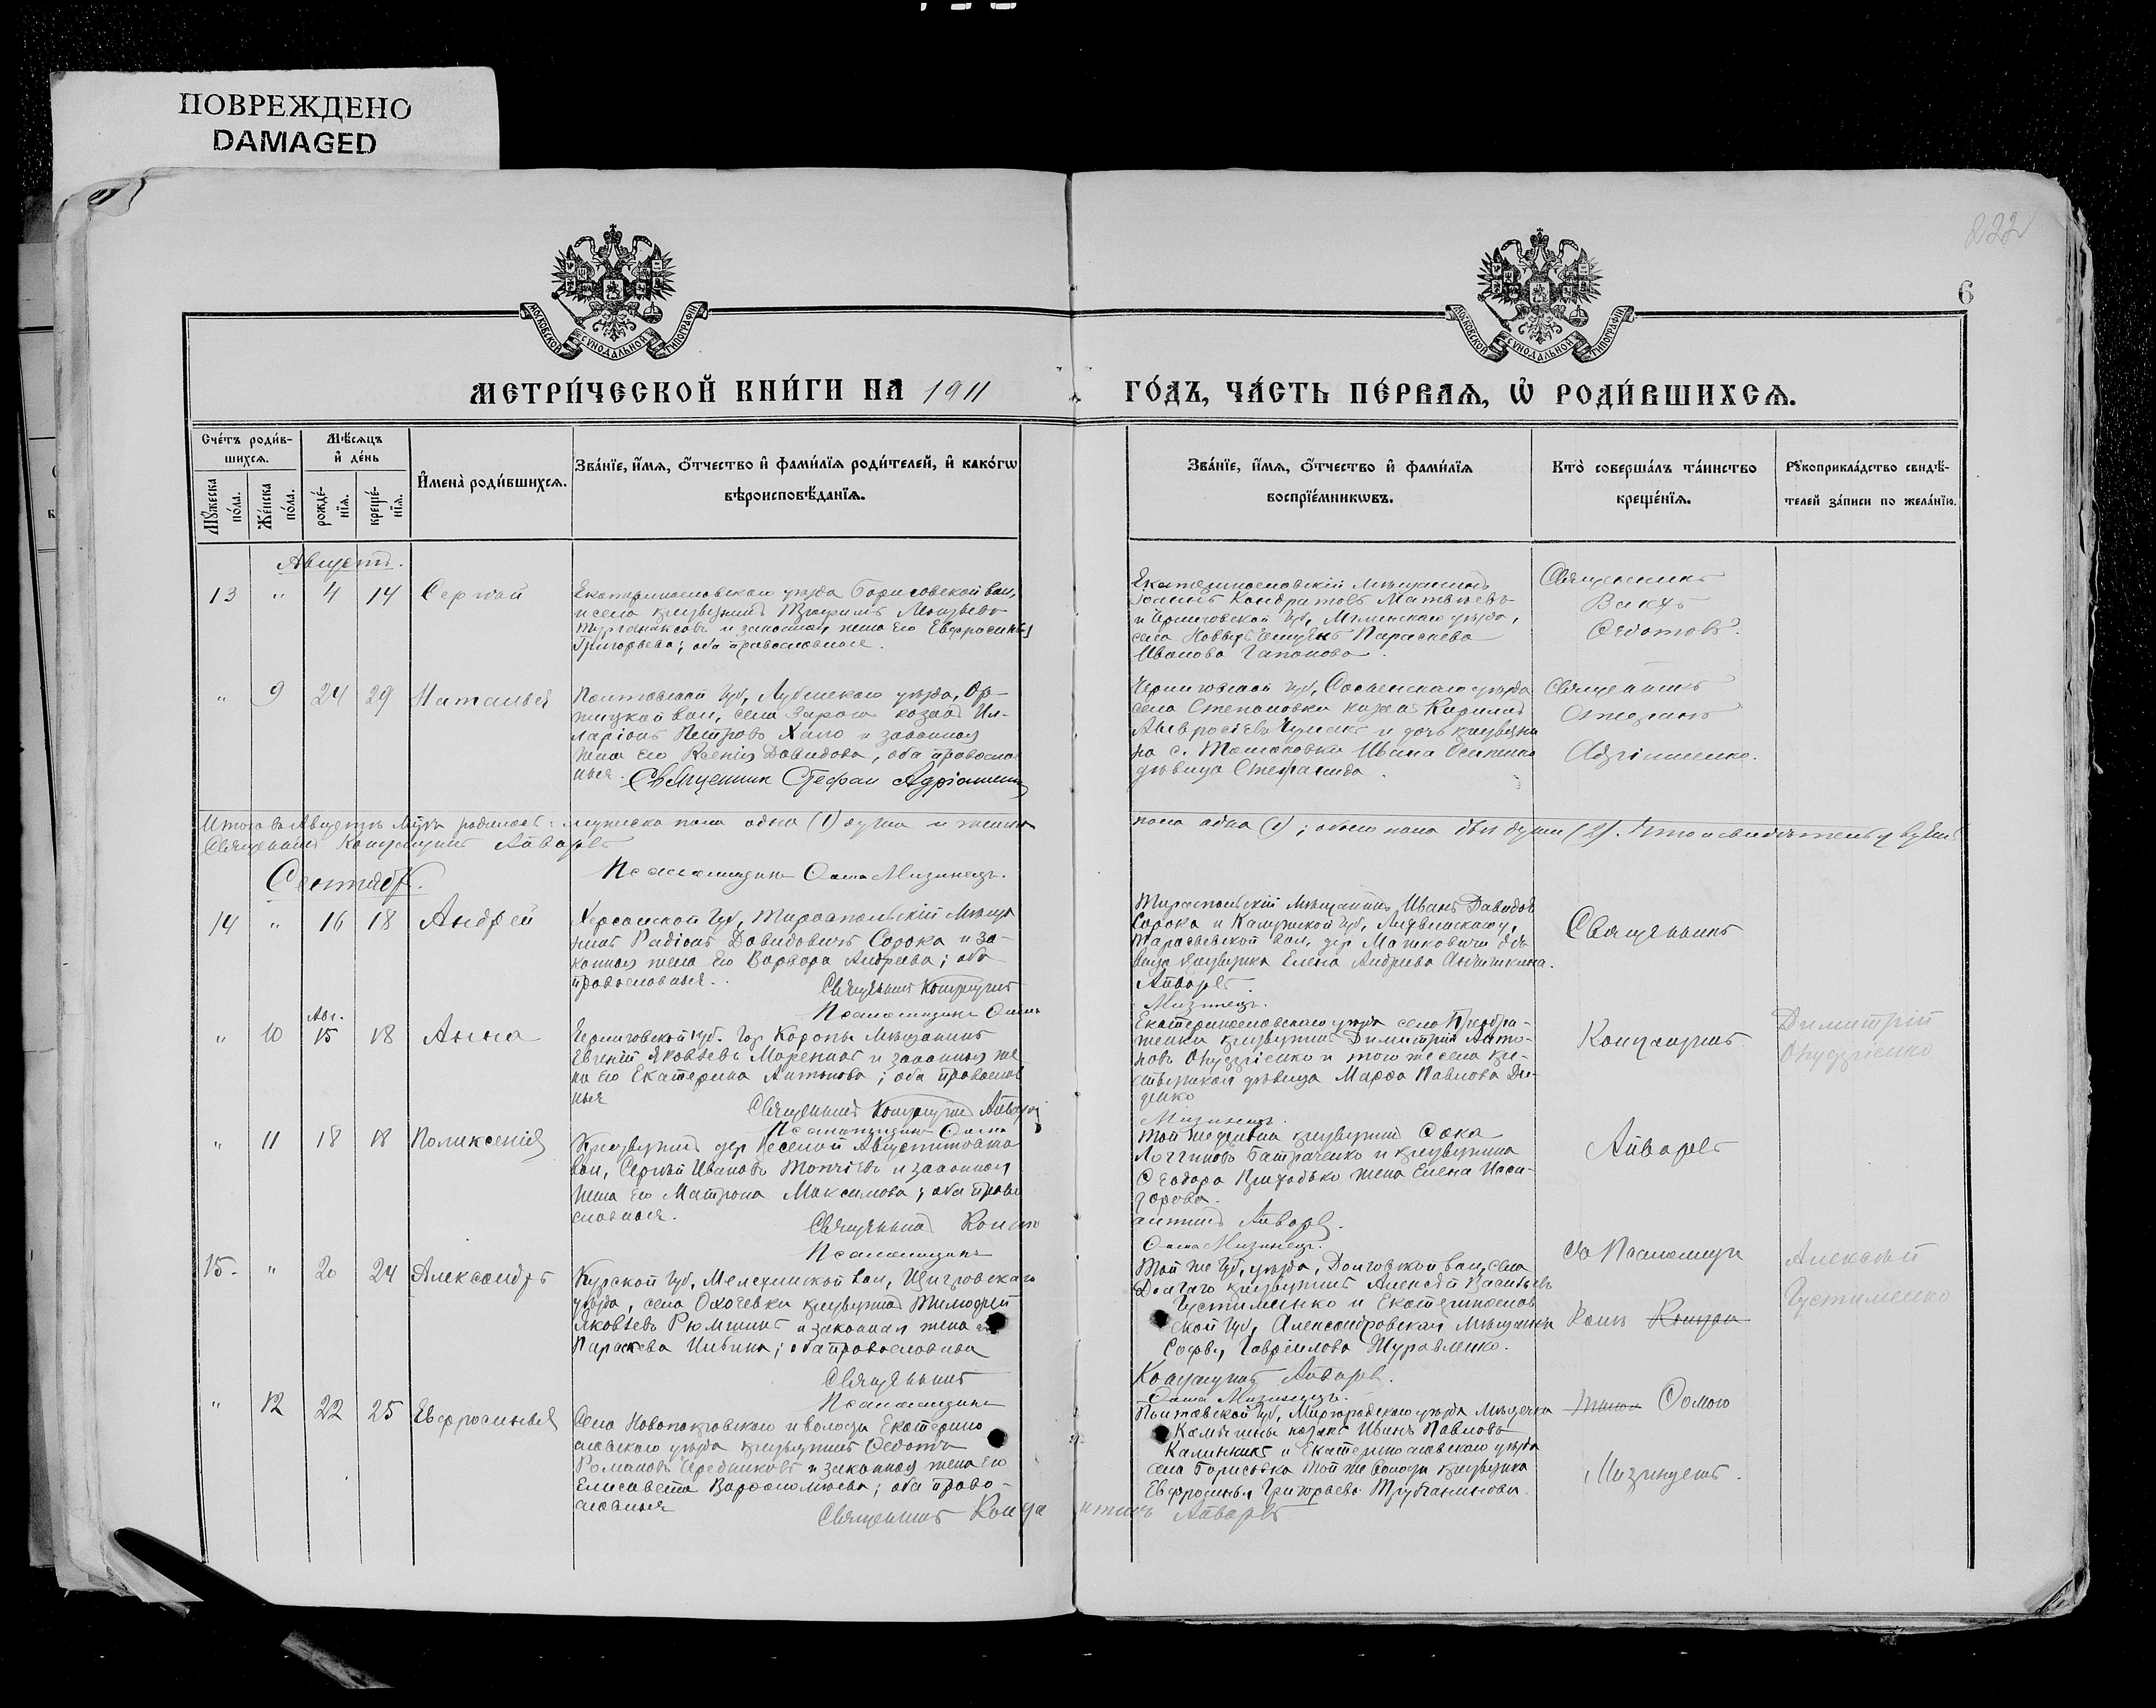 ПОВРЕЖДЕНО
DAMAGED
822
6
МОСКОВСКОЙ СУНОДАЛЬНОЙ ТИПОГРАФІИ
МОСКОВСКОЙ СУНОДАЛЬНОЙ ТИПОГРАФІИ
МЕТРИ́ЧЕСКОЙ КНИ́ГИ НА 1911 ГО́ДЪ, ЧА́СТЬ ПЕ́РВАѦ, Ѿ РОДИ́ВШИХСѦ.
Сче́тъ роди́в-
шихсѧ.
Мѣ́сѧцъ
и҆ де́нь
Мꙋ́жеска
по́ла.
Же́нска
по́ла.
рожде́-
нїѧ.
креще́-
нїѧ.
И҆мена̀ роди́вшихсѧ.
Зва́нїе, и҆́мѧ, ѻ҆́тчество и҆ фами́лїѧ роди́телей, и҆ како́гѡ
вѣроисповѣ́данїѧ.
Зва́нїе, и҆́мѧ, ѻ҆́тчество и҆ фами́лїѧ
воспрїе́мникѡвъ.
Кто̀ соверша́лъ та́инство
креще́нїѧ.
Рꙋкоприкла́дство свидѣ́-
телей за́писи по жела́нїю.
Августъ.
13 " 4 14 Сергѣй
Екатеринославскаго уѣзда Борисовской вол,
и села крестьянинъ Моисѣевъ
и законная жена его Евфросинья
Григорьева; оба православные.
Екатеринославскій мѣщанинъ
Іоаннъ Кондратовъ Матвѣевъ
и Черниговской губ, Мглинскаго уѣзда,
села Новыхъ Параскева
Иванова Гапонова.
Священникъ
Вакхъ
Федотовъ.
" 9 24 29 Наталья
Полтавской губ, Лубенскаго уѣзда, Ор-
жицкой вол, села Зарога козакъ Ил-
ларіонъ Петровъ Хало и законная
жена его Ксенія Давидова, оба православ
ные. Священник Стефан Адріяшенко
Черниговской губ, Сосницкаго уѣзда
села Степановки козакъ Кирилъ
Амвросіевъ Чумакъ и дочь крестьяни
на с. Томаковки Ивана Осипенко
дѣвица Стефанида.
Священникъ
Стефанъ
Адріяшенко.
Итого въ Августѣ мцѣ родилось: мужеска пола одна (1) душа и женска пола одна (1); обоего пола двѣ души (2). Что и свидѣтельствуемъ
Священникъ Айваровъ
Псаломщикъ Фома Мизинецъ.
Сентябрь.
14 " 16 18 Андрей
Херсонской губ, Тираспольскій мѣща
нинъ Радіонъ Давидовичъ Сорока и за-
конная жена его Варвара Андреева; оба
православные.
Священникъ
Псаломщикъ Фома
Тираспольскій мѣщанинъ Иванъ Давидов
Сорока и Калужской губ, Лихвинскаго у,
вол, дер Машковичи дѣ
вица крестьянка Елена Андреева
Айваровъ.
Мизинецъ.
Священникъ
Авг.
" 10 15 18 Анна
Черниговской губ. гор Коропы мѣщанинъ
Евгеній Яковлевъ и законная же
на его Екатерина Антонова; оба православ
ные
Священникъ Айваровъ
Псаломщикъ Фома
Екатеринославскаго уѣзда село Преобра-
женки крестьянинъ Димитрій Анто-
новъ Ондріенко и того же села кре-
стьянская дѣвица Марфа Павлова Ди-
денко
Мизинецъ.
Димитрій
" 11 18 18 Поликсенія
Крестьянинъ дер Веселой Августиновской
вол, Сергѣй Ивановъ Топчіевъ и законная
жена его Матрона Максимова; оба право
славные.
Священникъ
Псаломщикъ
той же деревни крестьянинъ Сава
Логгиновъ Батраченко и крестьянина
Феодора Приходько жена Елена Иси-
дорова.
Айваровъ.
Фома Мизинецъ.
Айваровъ
15. " 20 24 Александръ
Курской губ, Мелехинской вол, Щигровскаго
уѣзда, села Охочевки крестьянинъ Тимофей
Яковлевъ Рюмшинъ и законная жена его
Параскева Ильина; оба православные
Священникъ
Псаломщикъ
Той же губ, уѣзда, Долговской вол, села
Долгаго крестьянинъ Алексѣй Васильевъ
Густименко и Екатеринослав
ской губ, Александровская мѣщанка
Софья Гавріилова Журавленко.
Айваровъ.
Фома Мизинецъ.
съ Псаломщи
комъ
Алексѣй
Густименко
" 12 22 25 Евфросинья
Село Новопокровскаго и волости Екатерино
славскаго уѣзда крестьянинъ Федотъ
Романовъ Чередниковъ и законная жена его
Елисавета Варфоломѣева; оба право-
славные
Священникъ Айваровъ
Полтавской губ, Миргородскаго уѣзда мѣстечка
Камышны козакъ Иванъ Павловъ
Калинникъ и Екатеринославскаго уѣзда
села Борисовка той же волости крестьянка
Евфросинья Григорьева
Фомою
Мизинцемъ.